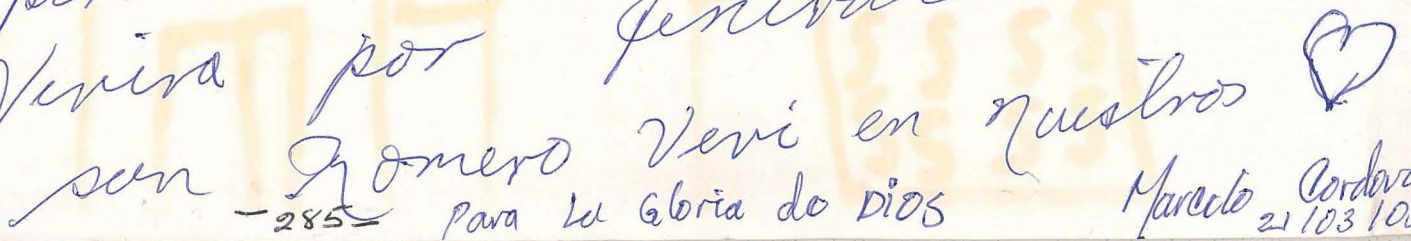 Vivira por
san Romero Veni en nuestros
-285- Para La Gloria de DIOS Marcelo Cordova
21/03/0